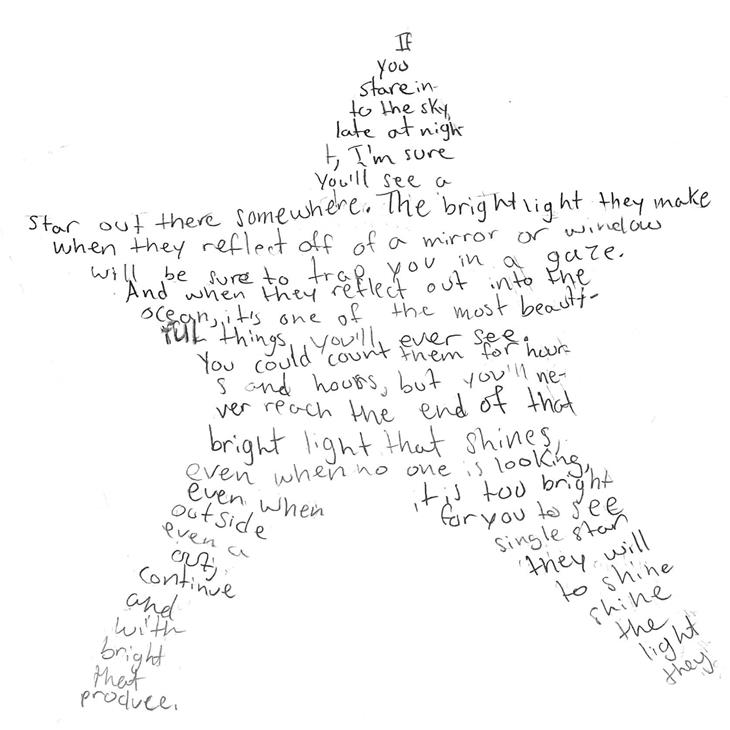 If
you
stare in-
to the sky
late at nigh
t, I'm sure
you'll see a
star out there somewhere. The bright light they make
when they reflect off of a mirror or window
will be sure to trap you in a gaze.
And when they reflect out into the
ocean, it's one of the most beauti-
ful things, you'll ever see.
You could count them for hour
s and hours, but you'll ne-
ver reach the end of that
bright light that shines,
even when no one is looking,
even when it is too bright
outside for you to see
even a single star
out, they will
continue to shine
and shine
with the
bright light
that they
produce.